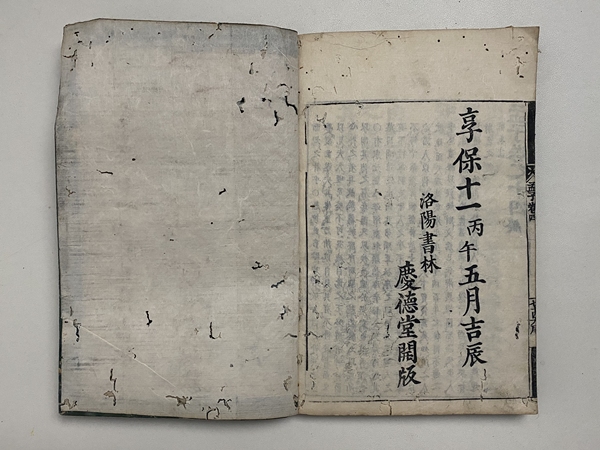 享保十一丙午五月吉辰
洛陽書林
慶德堂開版